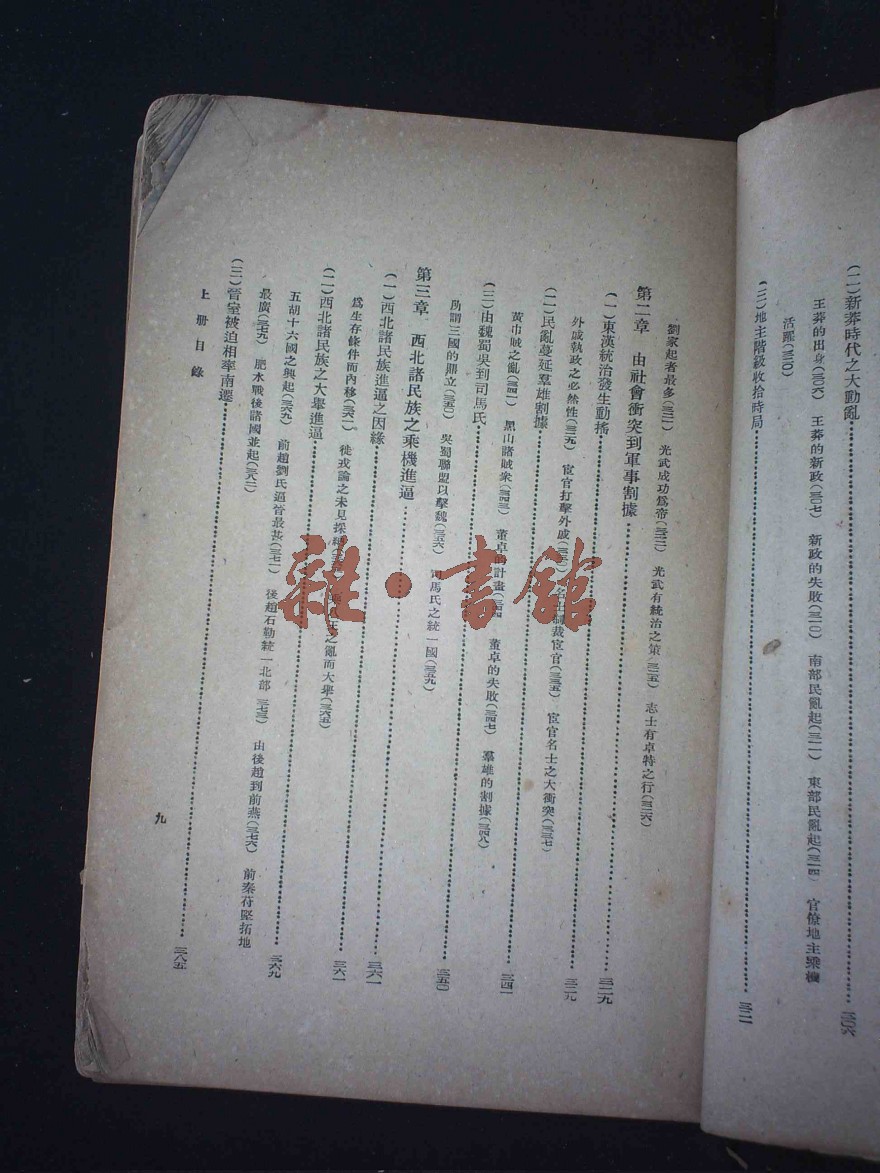 (二)新莽時代之大動亂……三〇六
王莽的出身(三〇六) 王莽的新政(三〇七) 新政的失敗(三一〇) 南部民亂起(三一一) 東部民亂起(三一四) 官僚地主乘機
活躍(三二〇)
(三)地主階級收拾時局……三二一
劉家起者最多(三二一) 光武成功爲帝(三二三) 光武有統治之策(三二五) 志士有卓特之行(三二六)
第二章 由社會衝突到軍事割據……三二九
(一)東漢統治發生動搖……三二九
外戚執政之必然性(三二九) 宦官打擊外戚 名士制裁宦官(三三五) 宦官名士之大衝突(三三七)
(二)民亂蔓延羣雄割據……三四一
黃巾賊之亂(三四一) 黑山諸賊衆(三四三) 董卓的計畫(三四四 董卓的失敗(三四七) 羣雄的割據(三四八)
(三)由魏蜀吳到司馬氏……三五〇
所謂三國的鼎立(三五〇) 吳蜀聯盟以擊魏(三五六) 司馬氏之統一國(三五九)
第三章 西北諸民族之乘機進逼……三六一
(一)西北諸民族進逼之因緣……三六一
爲生存條件而內移(三六一) 徙戎論之未見採 之亂而大舉(三六五)
(二)西北諸民族之大舉進逼……三六九
五胡十六國之興起(三六九) 前趙劉氏逼晉最甚(三七一) 後趙石勒統一北部 三七三) 由後趙到前燕(三七六) 前秦苻堅拓地
最廣(三七九) 肥水戰後諸國並起(三八二)
(三)晉室被迫相率南遷……三八五
上册目錄
九
雜·書館